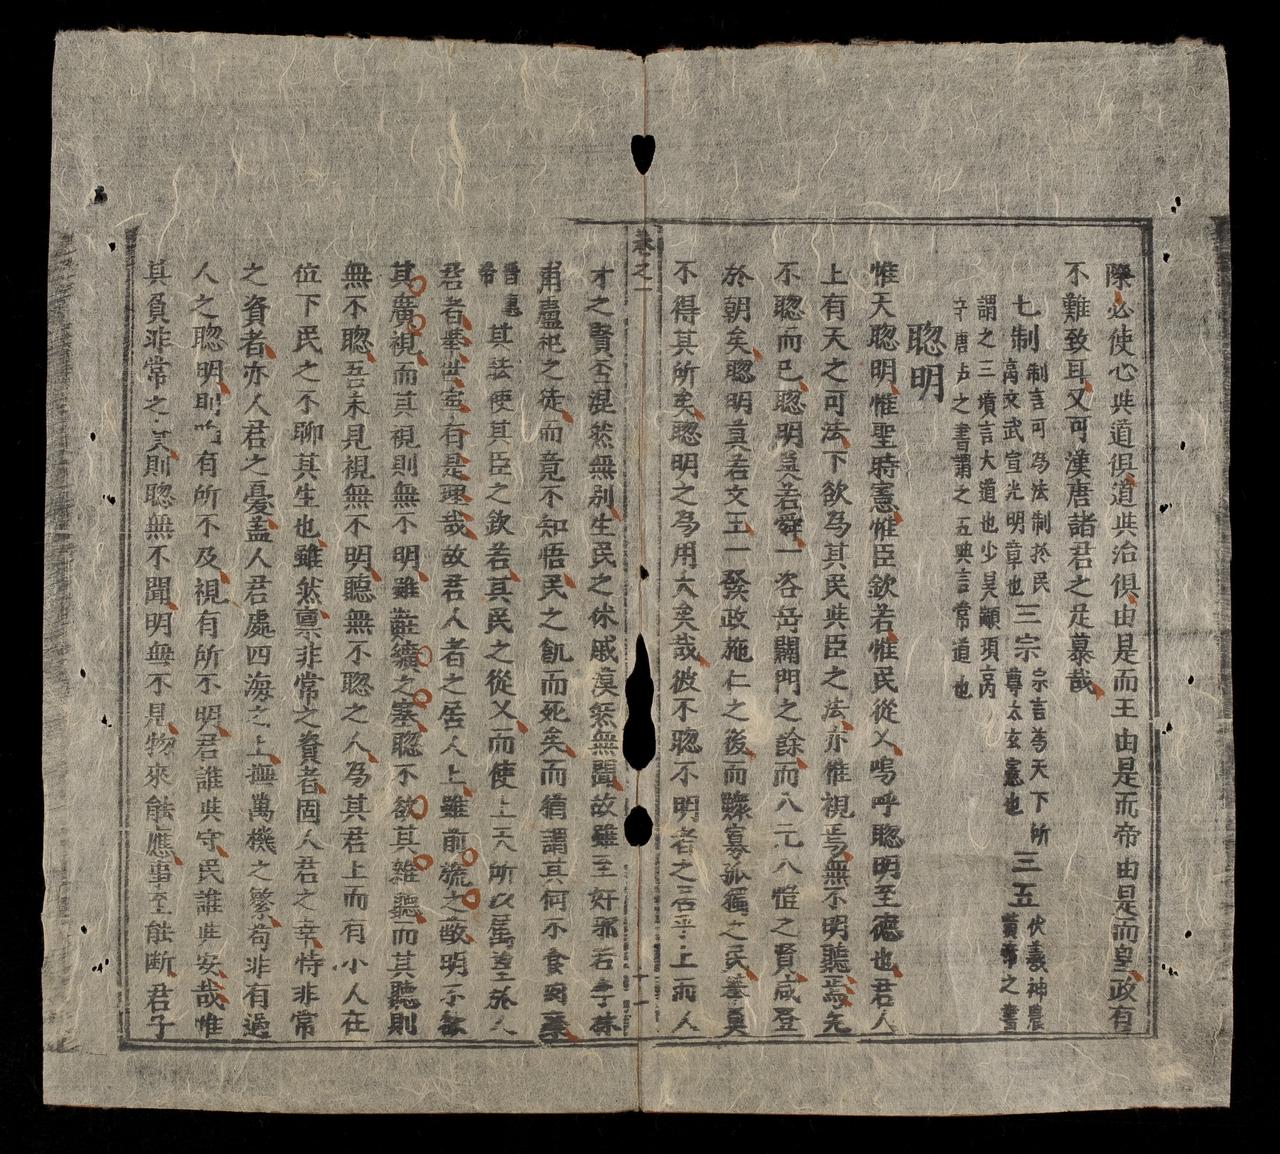 際必使心與道俱道與治俱由是而王由是而帝由是而皇政有
不難致耳又可漢唐諸君之足慕哉
七制 制言可為法制於民 高文武宣光明章也 三宗 宗言為天下所 尊太玄憲也 三五 伏羲神農 黃帝之書
謂之三墳言大道也少昊顓頊高
辛唐虞之書謂之五典言常道也
聦明
惟天聦明惟聖時憲惟臣欽若惟民從乂嗚呼聦明至德也君人
上有天之可法下欲為其民與臣之法亦惟視焉無不明聽焉无
不聦而已聦明莫若舜一咨岳闢門之餘而八元八愷之賢咸登
於朝矣聦明莫若文王一發政施仁之後而鰥寡孤獨之民舉莫
不得其所矣聦明之為用大矣哉彼不聦不明者之君乎上而人
卷之一
十一
才之賢否混然無別生民之休戚漠然無聞故雖至奸邪若李林
甫盧祀之徒而竟不知悟民之飢而死矣而猶謂其何不食肉糜
晉惠帝 其法使其臣之欽若其民之從乂而使上天所以屬望於人
君者舉世寧有是理哉故君人者之居人上雖前旒之蔽明不欲
其廣視而其視則無不明雖黈纊之塞聦不欲其雜聽而其聽則
無不聦吾未見視無不明聽無不聦之人為其君上而有小人在
位下民之不聊其生也雖然禀非常之資者固人君之幸恃非常
之資者亦人君之憂盖人君處四海之上撫萬機之繁苟非有過
人之聦明則聽有所不及視有所不明君誰與守民誰與安哉惟
其負非常之資則聦無不聞明無不見物來能應事至能斷君子